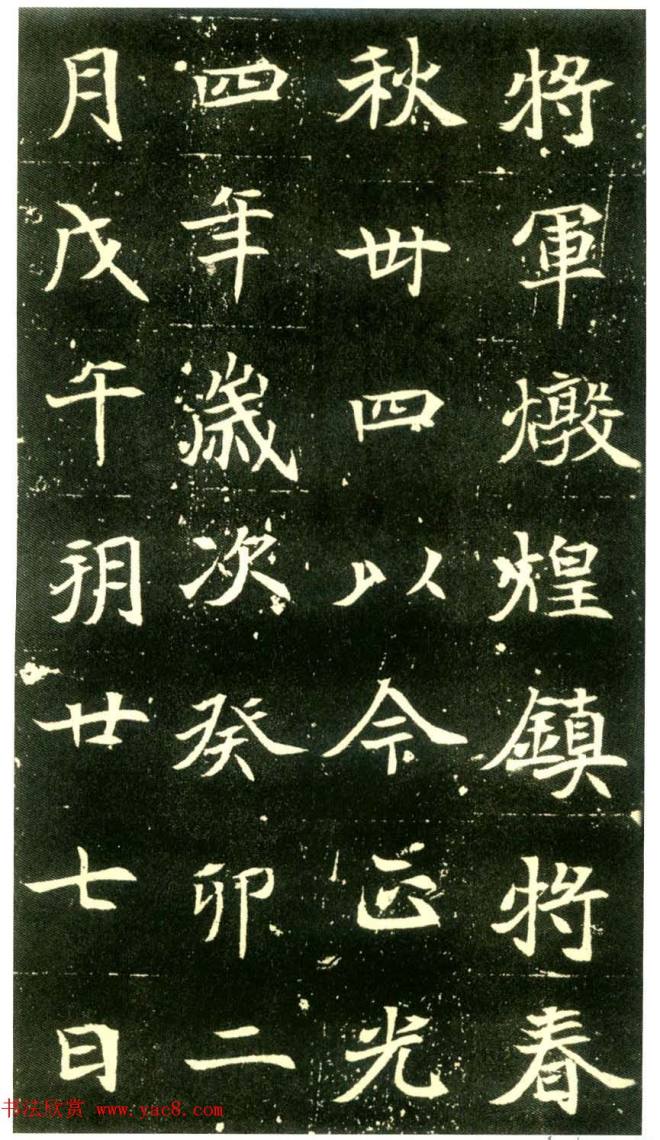 將軍燉煌鎮將春
秋卌四以今正光
四年歲次癸卯二
月戊午朔廿七日
书法欣赏 www.yac8.com